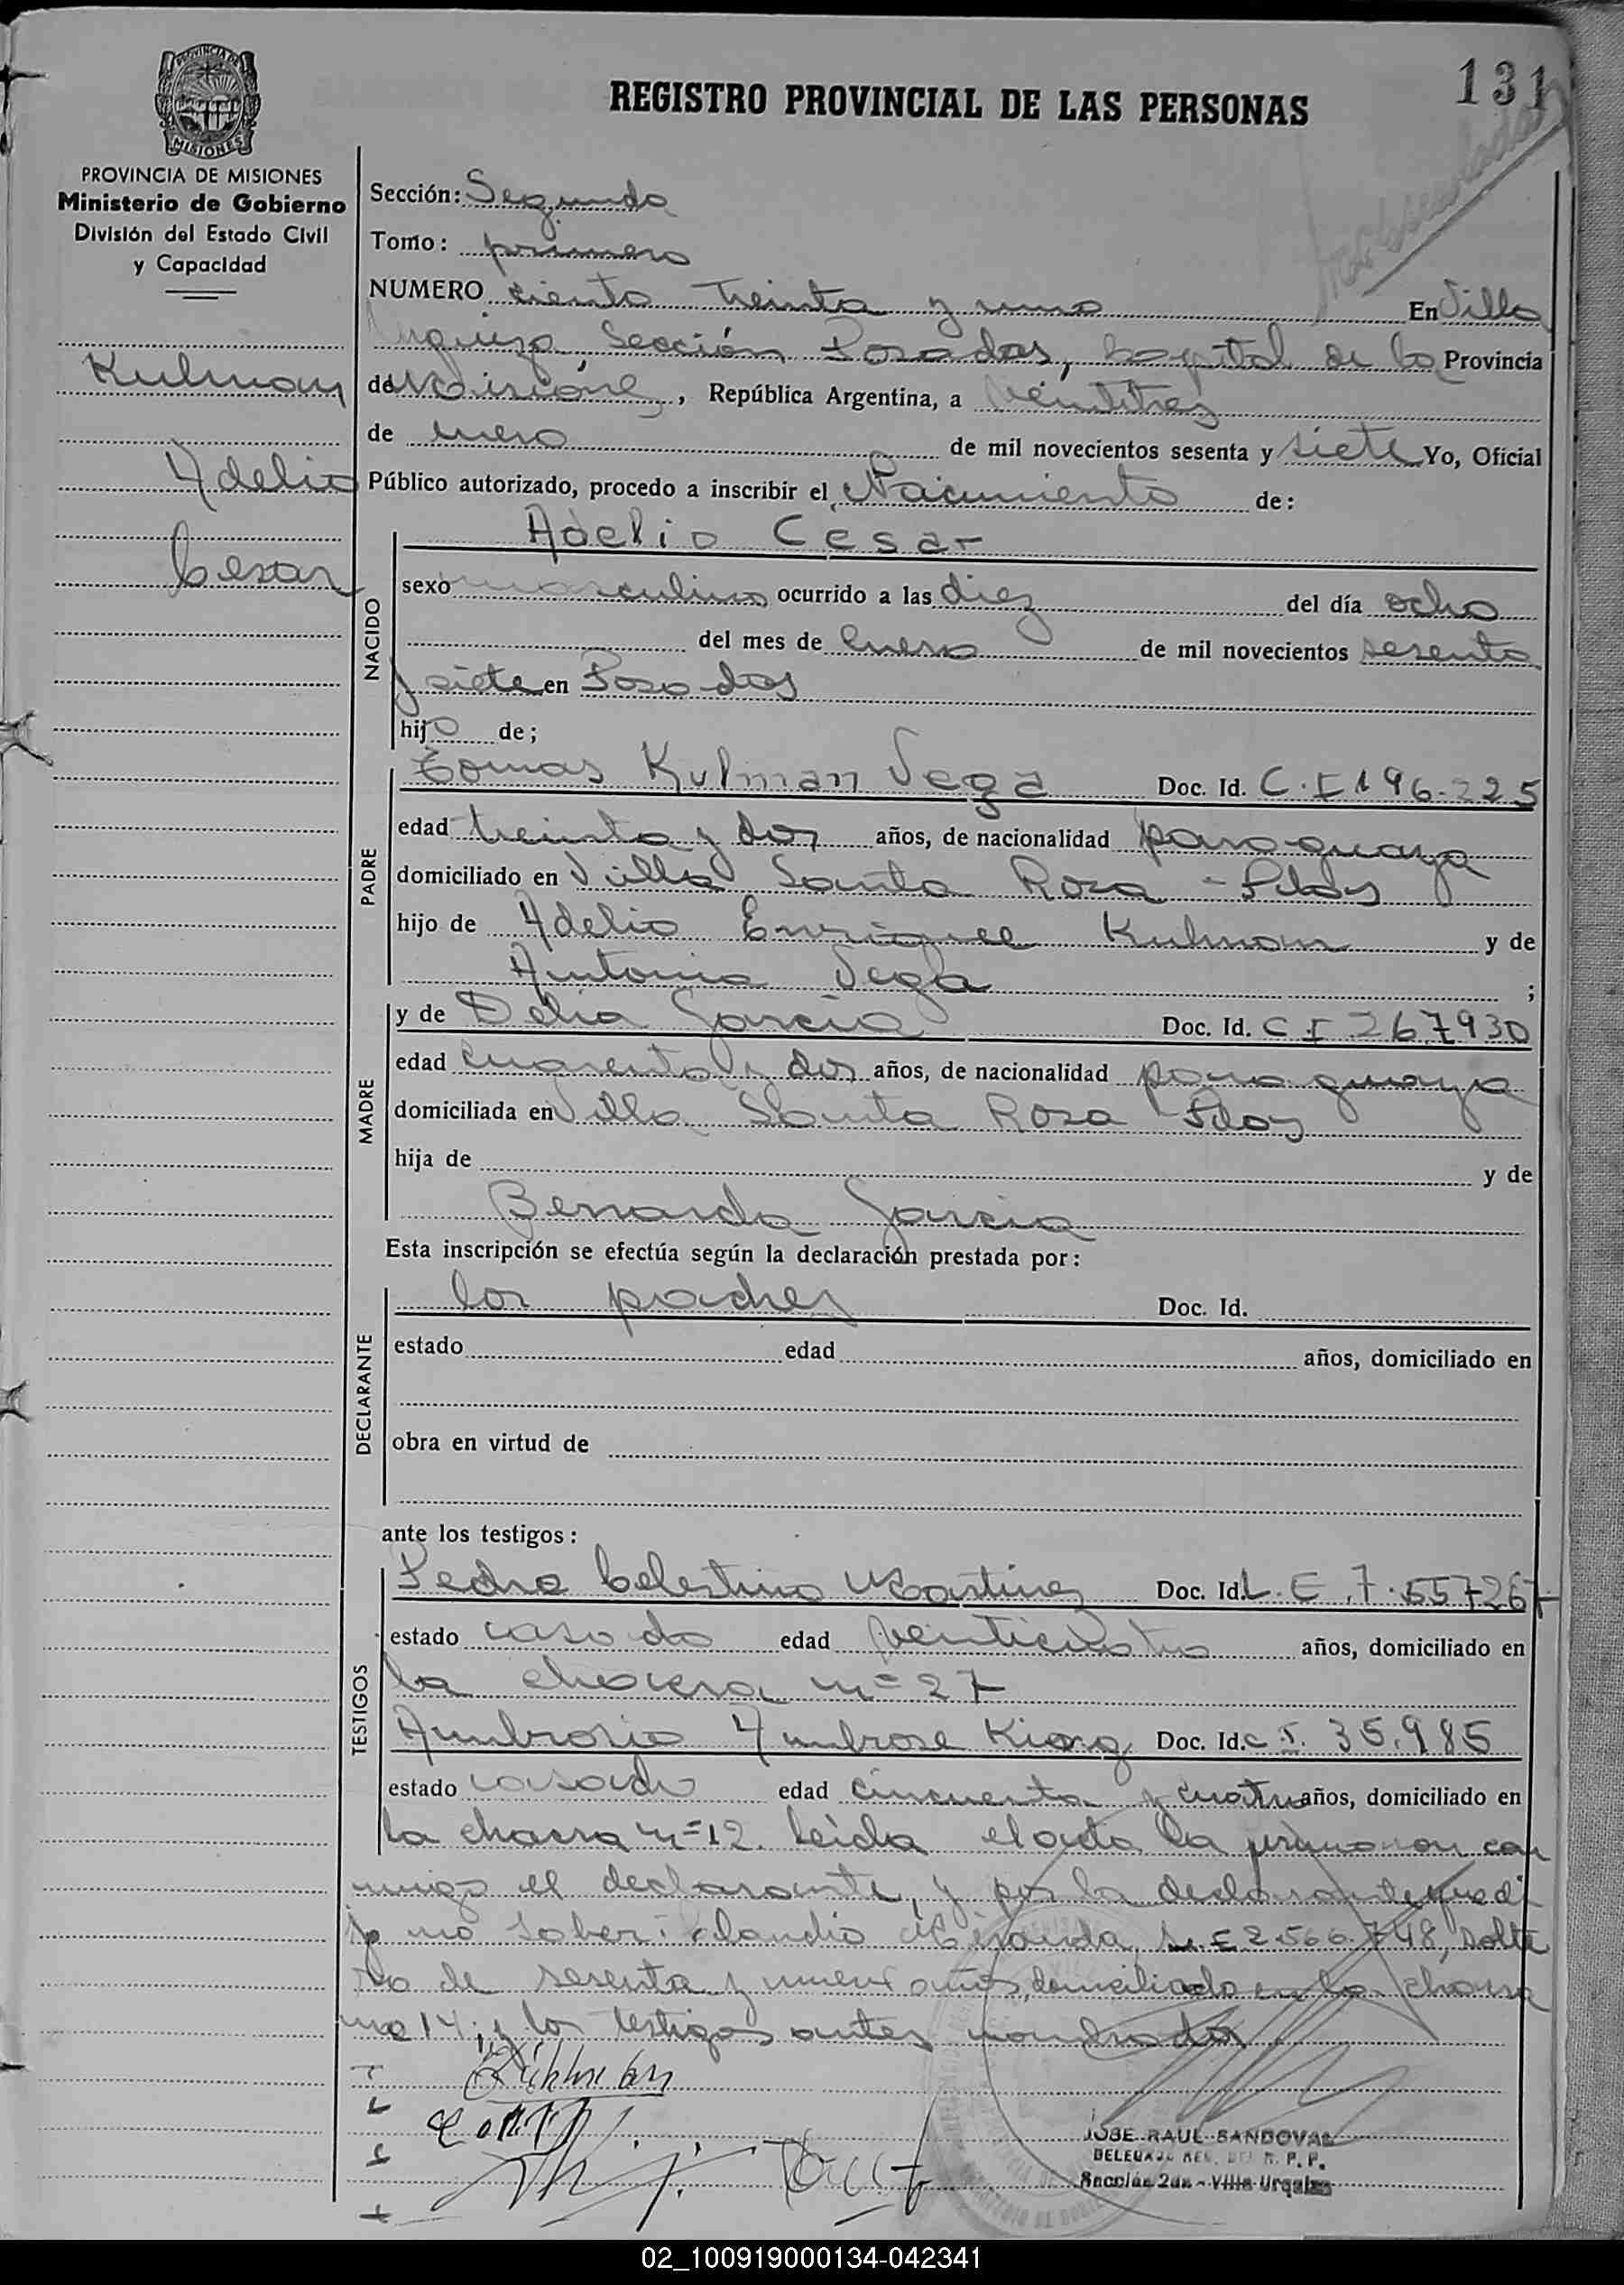 131
REGISTRO PROVINCIAL DE LAS PERSONAS
PROVINCIA DE MISIONES
MISIONES
PROVINCIA DE MISIONES
Ministerio de Gobierno
División del Estado Civil
y Capacidad
Kulman
Adelio
Cesar
Sección: Segunda
Tomo: primero
NUMERO ciento treinta y uno En Villa
Urquiza, Sección Posadas, Capital de la Provincia
de Misiones, República Argentina, a veintitres
de enero de mil novecientos sesenta y siete Yo, Oficial
Público autorizado, procedo a inscribir el Nacimiento de:
NACIDO
Adelio Cesar
sexo masculino ocurrido a las diez del día ocho
del mes de Enero de mil novecientos sesenta
y siete en Posadas
hijo de;
PADRE
Tomas Kulman Vega Doc. Id. C.I 196.225
edad treinta y dos años, de nacionalidad paraguaya
domiciliado en Villa Santa Rosa - Pdas
hijo de Adelio Enrique Kulman y de
Antonia Vega ;
MADRE
y de Delia Garcia Doc. Id. C I 267930
edad cuarenta y dos años, de nacionalidad paraguaya
domiciliada en Villa Santa Rosa - Pdas
hija de y de
Bernarda Garcia
Esta inscripción se efectúa según la declaración prestada por:
DECLARANTE
los padres Doc. Id.
estado edad años, domiciliado en
obra en virtud de
ante los testigos:
TESTIGOS
Pedro Celestino Martinez Doc. Id. L.E.7.557267
estado casado edad venticuatro años, domiciliado en
la chacra nº 27
Ambrosio Ambrose Doc. Id. C.I. 35.985
estado casado edad cincuenta y cuatro años, domiciliado en
la chacra nº 12. Leida el acta la firmaron con
migo el declarante, y por la declarante que di
jo no saber: Claudio Miranda, L.E 2.566.748, solte
ro de sesenta y nueve años, domiciliado en la chacra
nro 14; y los testigos antes nombrados.
JOSE RAUL SANDOVAL
Sección 2da - Villa Urquiza
02_100919000134-042341